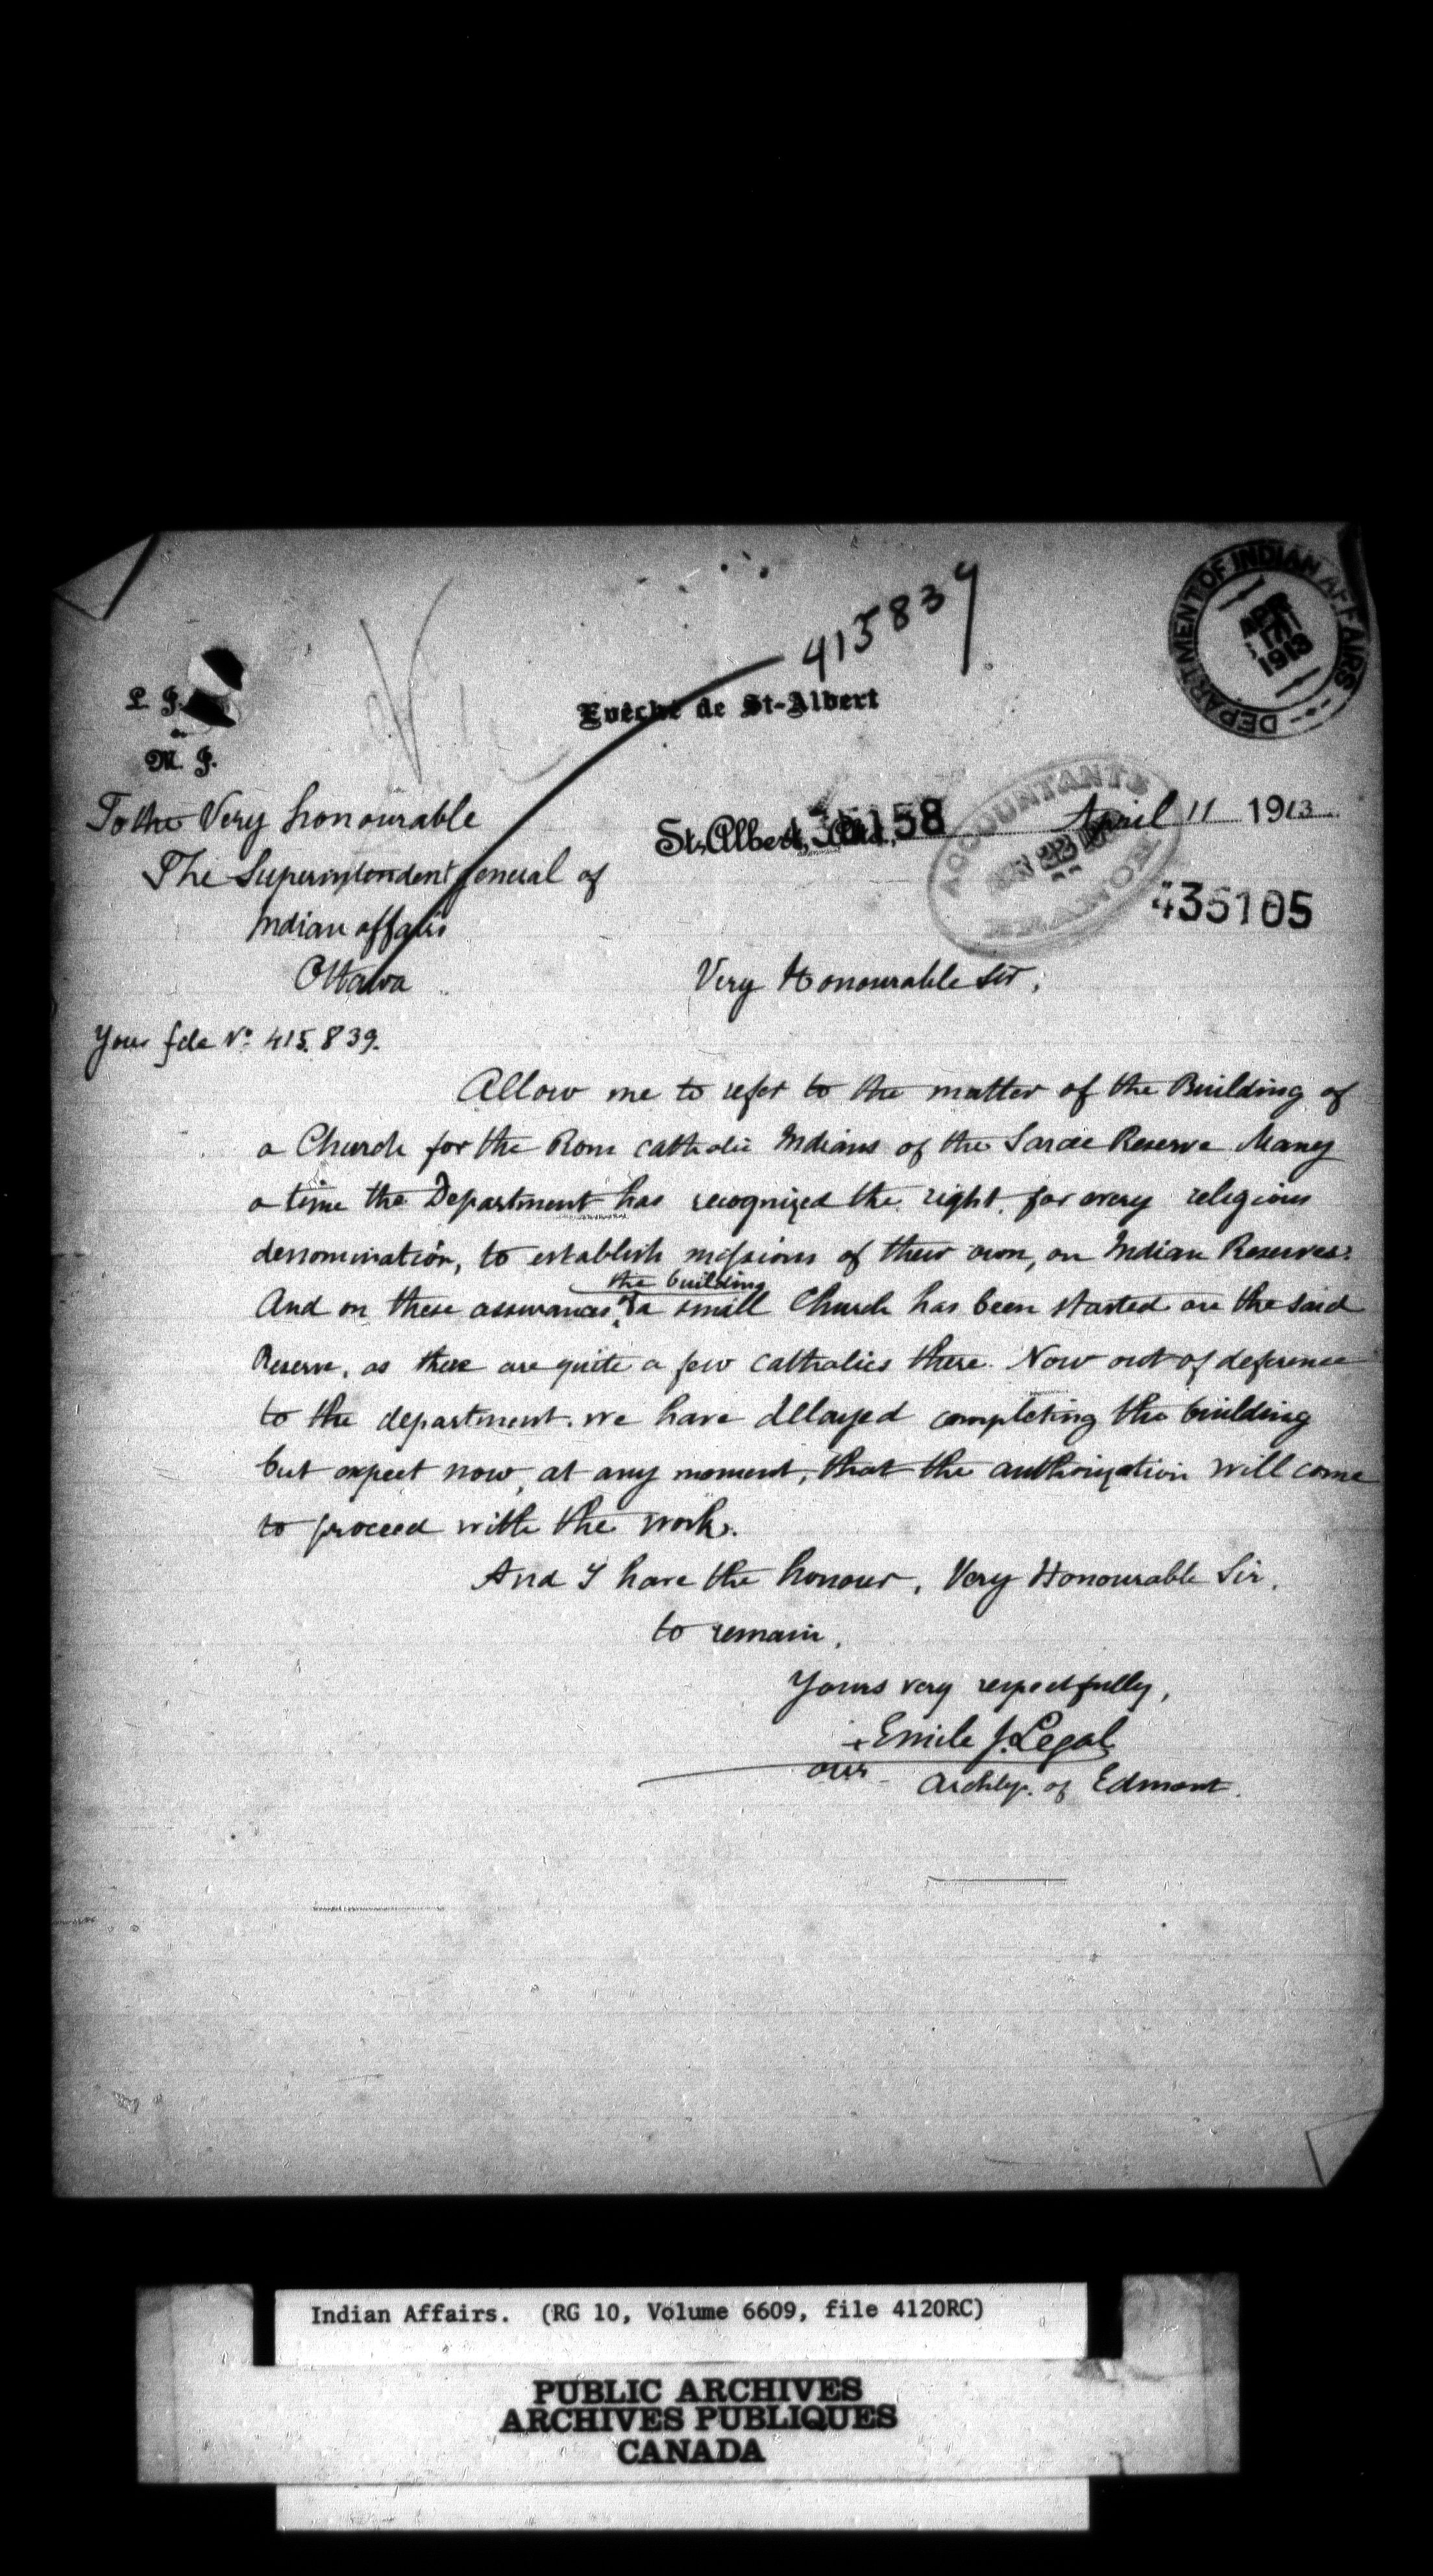 415839
DEPARTMENT OF INDIAN AFFAIRS
APR 17 1913
L. J.
M. J.
Evêché de St-Albert
To the Very honourable
The Superintendent general of
Indian affairs
Ottawa
St-Albert, 435158 April 11 1913
ACCOUNTANTS BRANCH
435105
Very Honourable Sir,
Your file No 415.839.
Allow me to refer to the matter of the Building of
a Church for the Rom catholic Indians of the Sarcee Reserve Many
a time the Department has recognized the right, for every religious
denomination, to establish missions of their own, on Indian Reserves.
the building
And on these assurances of a small Church has been started on the said
Reserve, as there are quite a few catholics there. Now out of deference
to the department, we have delayed completing the building
but expect now, at any moment, that the authorization will come
to proceed with the work.
And I have the honour, Very Honourable Sir,
to remain,
Yours very respectfully,
+ Emile J. Legal
OMI
Archbp. of Edmont.
Indian Affairs. (RG 10, Volume 6609, file 4120RC)
PUBLIC ARCHIVES
ARCHIVES PUBLIQUES
CANADA